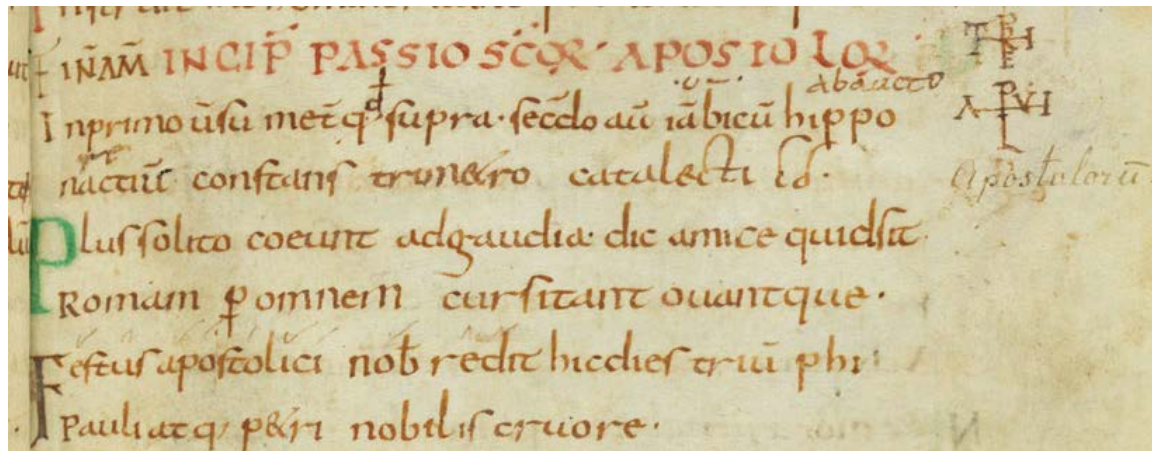 INÑAM̄ INCIP̄ PASSIO SC̄OR̨ · APOSTOLOR̨
Inprimo ūsu met̄ qđ supra · sēcdo aū iābicū hippo
nactiū constans trimetro catalecti cō ·
Plus solito coeunt adgaudia · dic amice quidsit
Romam ꝑ omnem cursitant ouantque ·
Festus apostolici nob̄ redit hicdies triūphi
Pauli atq; p&ri nobilis cruore ·
apostolorū